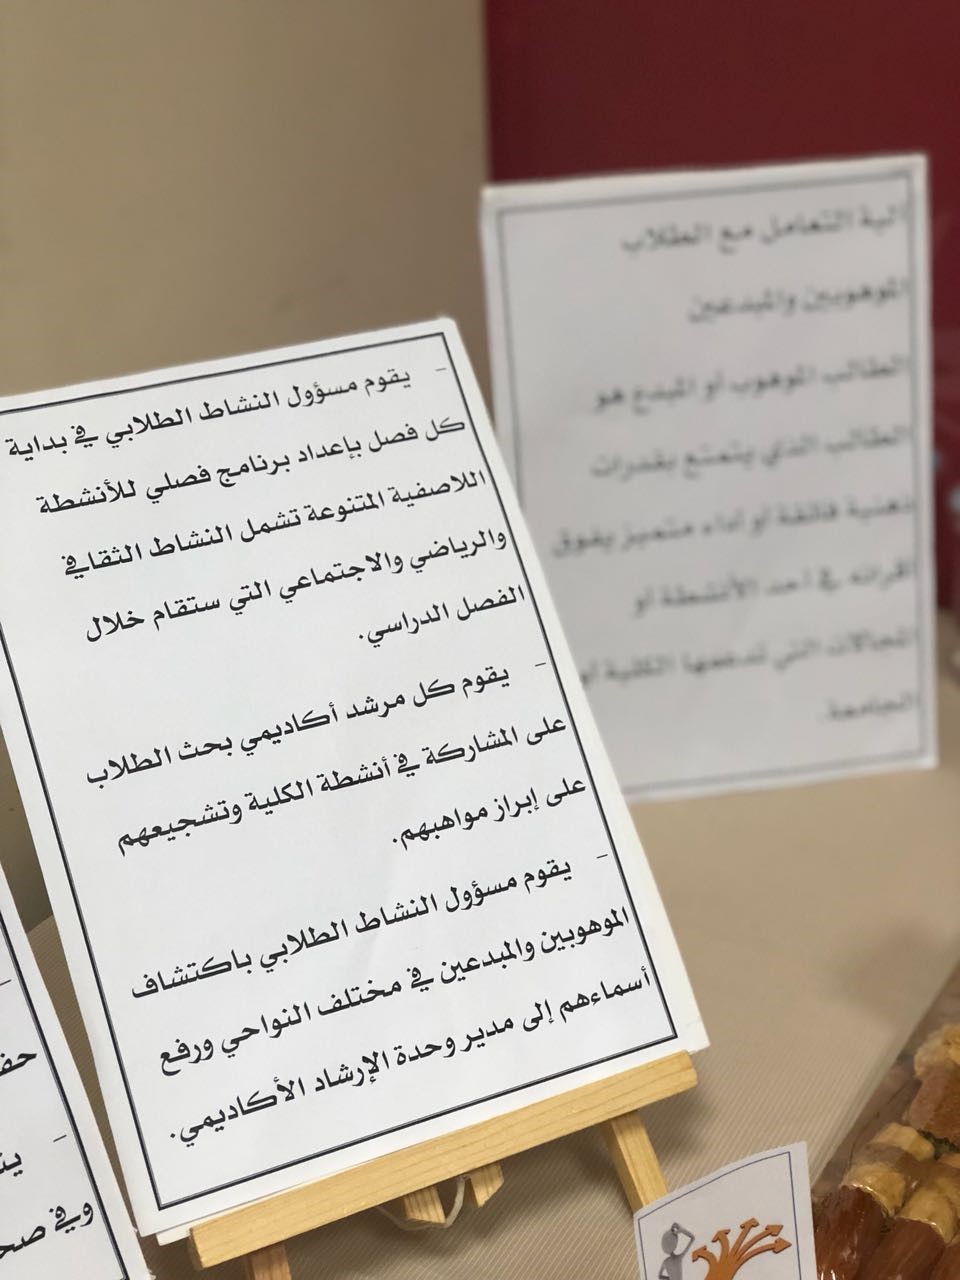 آلية التعامل مع الطلاب
الموهوبين والمبدعين
الطالب الموهوب أو المبدع هو
الطالب الذي يتمتع بقدرات
ذهنية فائقة أو أداء متميز يفوق
أقرانه في أحد الأنشطة أو
المجالات التي تدعمها الكلية أو
الجامعة.
- يقوم مسؤول النشاط الطلابي في بداية
كل فصل بإعداد برنامج فصلي للأنشطة
اللاصفية المتنوعة تشمل النشاط الثقافي
والرياضي والاجتماعي التي ستقام خلال
الفصل الدراسي.
- يقوم كل مرشد أكاديمي بحث الطلاب
على المشاركة في أنشطة الكلية وتشجيعهم
على إبراز مواهبهم.
- يقوم مسؤول النشاط الطلابي باكتشاف
الموهوبين والمبدعين في مختلف النواحي ورفع
أسماءهم إلى مدير وحدة الإرشاد الأكاديمي.